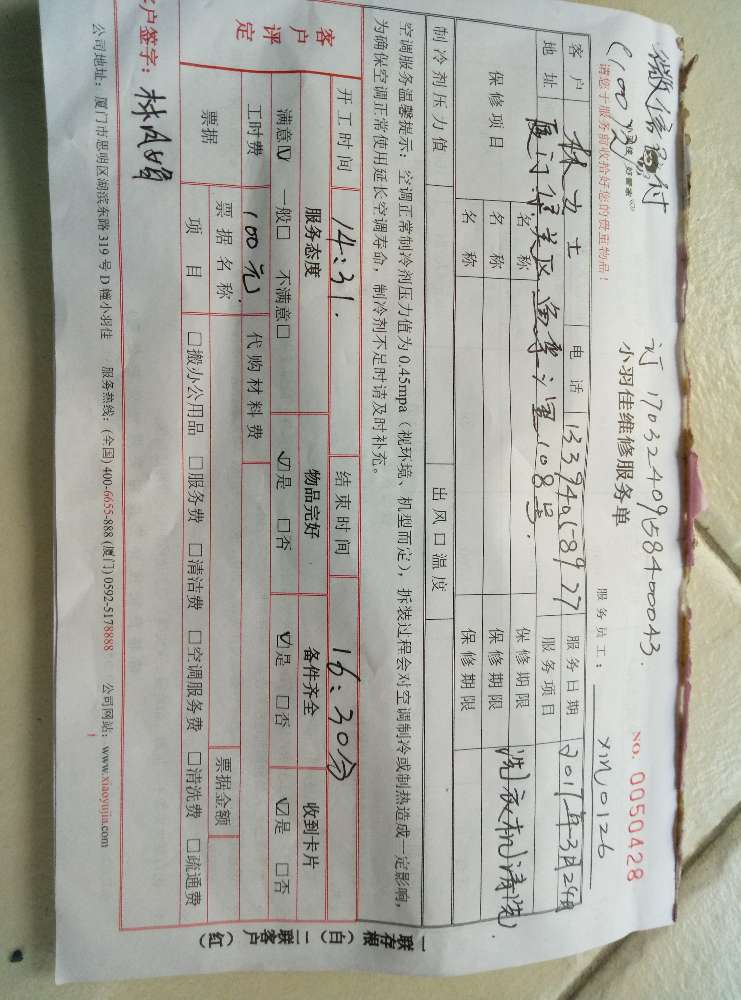 微信已付
(100元)
小羽佳 好管家
请您于服务前收拾好您的贵重物品!
订 17032409584000A3
小羽佳维修服务单
NO. 0050428
服务员工: XM0126
客户 林女士 电话 13394058927 服务日期 2017年3月24日
地址 厦门集美区 108号. 服务项目 洗衣机清洗
保修项目 名称 保修期限
名称 保修期限
名称 保修期限
制冷剂压力值 出风口温度
空调服务温馨提示:空调正常制冷剂压力值为0.45mpa(视环境、机型而定),拆装过程会对空调制冷或制热造成一定影响,
为确保空调正常使用延长空调寿命,制冷剂不足时请及时补充。
开工时间 14:31. 结束时间 16:30分
客户评定 服务态度 物品完好 备件齐全 收到卡片
满意☑ 一般□ 不满意□ ☑是 □否 ☑是 □否 ☑是 □否
工时费 100元. 代购材料费
票据 票据名称 票据金额
项目 □搬办公用品 □服务费 □清洁费 □空调服务费 □清洗费 □疏通费
客户签字:
公司地址:厦门市思明区湖滨东路319号D幢小羽佳 服务热线:(全国)400-6655-888 (厦门)0592-5178888 公司网站:www.xiaoyujia.com
一联存根(白) 二联客户(红)